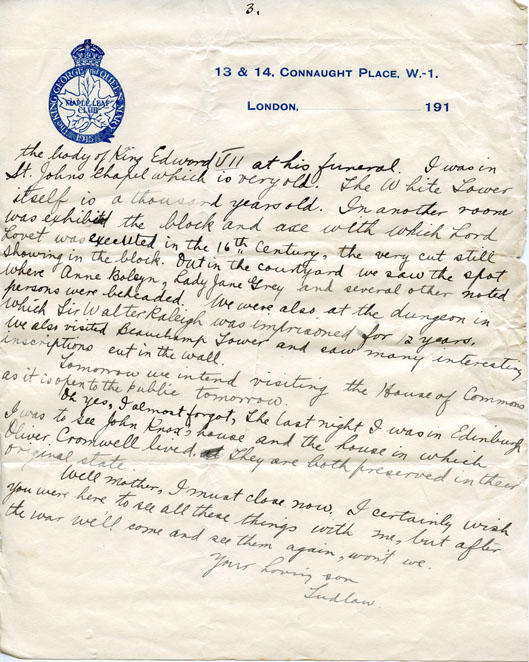 3.
THE KING GEORGE AND QUEEN MARY
MAPLE LEAF
CLUB
1915
13 & 14, CONNAUGHT PLACE, W.-1.
LONDON, 191
the body of King Edward VII at his funeral. I was in
St. Johns Chapel which is very old. The White Tower
itself is a thousand years old. In another room
was exhibited the block and axe with which Lord
Lovet was executed in the 16th Century, the very cut still
showing in the block. Out in the courtyard we saw the spot
where Anne Boleyn, Lady Jane Grey and several other noted
persons were beheaded. We were also at the dungeon in
which Sir Walter Raleigh was imprisoned for 12 years.
We also visited Beauchamp Tower and saw many interesting
inscriptions cut in the wall.
Tomorrow we intend visiting the House of Commons
as it is open to the public tomorrow.
Oh yes, I almost forgot, The last night I was in Edinburgh
I was to see John Knox's house and the house in which
Oliver Cromwell lived. They are both preserved in their
original state
Well mother, I must close now. I certainly wish
you were here to see all these things with me, but after
the war we'll come and see them again, won't we.
Your loving son
Ludlow.